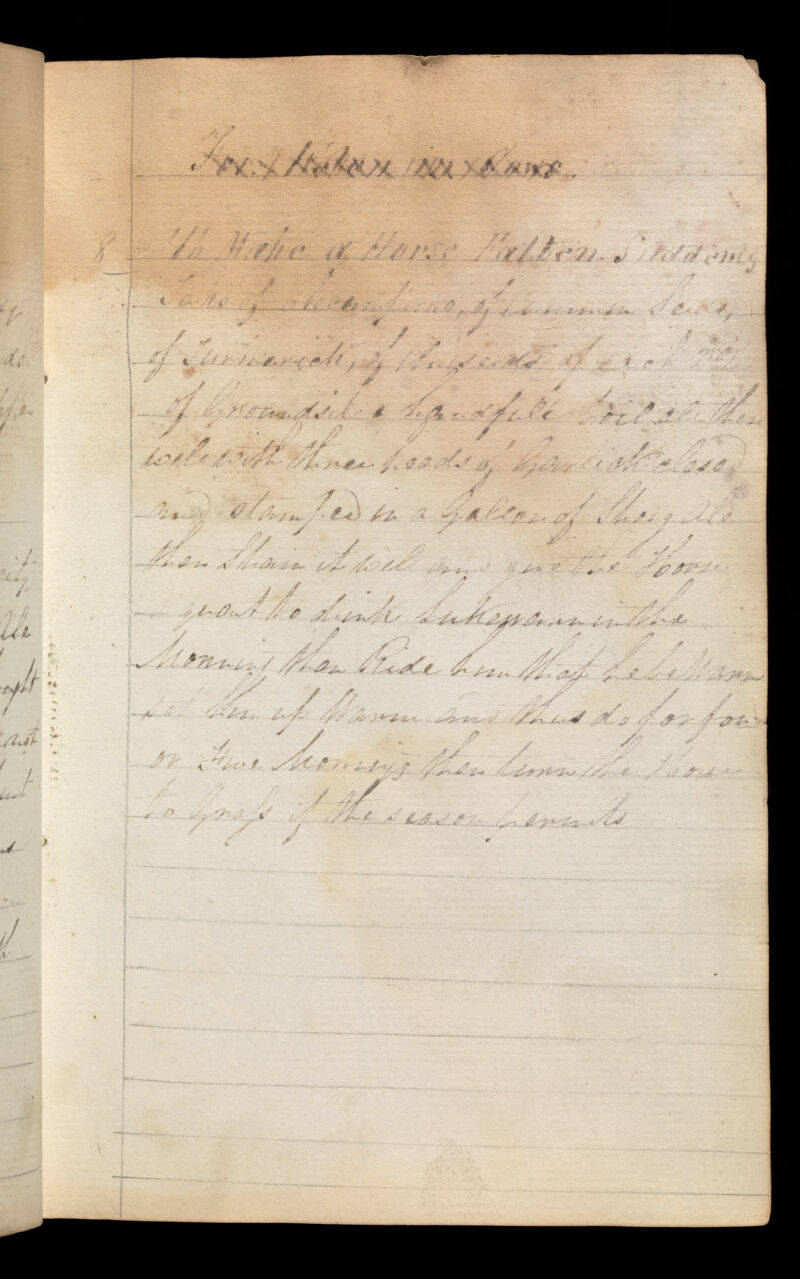 8 To Make a Horse Fatten Suddenly
Take of elecampane, of Cummin Seeds,
of Turmerick, of Aniseeds of each
of Groundsil a handfull boil all then
well with three heads of Garlick closed
and stamped in a Gallon of Strong Ale
then Strain it well and give the Horse
a quart to drink Lukewarm in the
Morning then Ride him that he be Warm
set him up Warm and thus do for four
or Five Mornings then turn the Horse
to Grass if the season permits
Ale